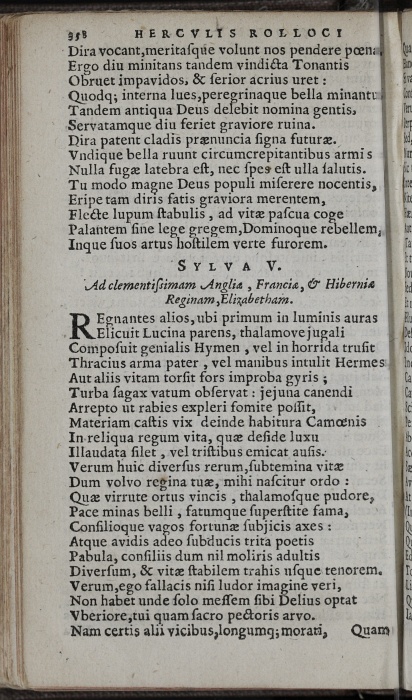 358 HERCVLIS ROLLOCI
Dira vocant,meritaſque volunt nos pendere pœna,
Ergo diu minitans tandem vindicta Tonantis
Obruet impavidos, & ſerior acrius uret :
Quodq; interna lues,peregrinaque bella minantu
Tandem antiqua Deus delebit nomina gentis,
Servatamque diu feriet graviore ruina.
Dira patent cladis prænuncia ſigna futuræ.
Vndique bella ruunt circumcrepitantibus armis
Nulla fugæ latebra eſt, nec ſpes eſt ulla ſalutis.
Tu modo magne Deus populi miſerere nocentis,
Eripe tam diris fatis graviora merentem,
Flecte lupum ſtabulis , ad vitæ paſcua coge
Palantem ſine lege gregem,Dominoque rebellem,
Inque ſuos artus hoſtilem verte furorem.
SYLVA V.
Ad clementiſsimam Angliæ , Franciæ, & Hiberniæ
Reginam,Elizabetham.
REgnantes alios,ubi primum in luminis auras
Elicuit Lucina parens, thalamove jugali
Compoſuit genialis Hymen , vel in horrida truſit
Thracius arma pater , vel manibus intulit Hermes
Aut aliis vitam torſit fors improba gyris ;
Turba ſagax vatum obſervat : jejuna canendi
Arrepto ut rabies expleri fomite poſſit,
Materiam caſtis vix deinde habitura Camœnis
In reliqua regum vita, quæ deſide luxu
Illaudata ſilet , vel triſtibus emicat auſis.
Verum huic diverſus rerum,ſubtemina vitæ
Dum volvo regina tuæ, mihi naſcitur ordo :
Quæ virrute ortus vincis , thalamoſque pudore,
Pace minas belli , fatumque ſuperſtite fama,
Conſilioque vagos fortunæ ſubjicis axes :
Atque avidis adeo ſubducis trita poetis
Pabula, conſiliis dum nil moliris adultis
Diverſum, & vitæ ſtabilem trahis uſque tenorem.
Verum,ego fallacis niſi ludor imagine veri,
Non habet unde ſolo meſſem ſibi Delius optat
Vberiore,tui quam ſacro pectoris arvo.
Nam certis alii vicibus,longumq; morati, Quam